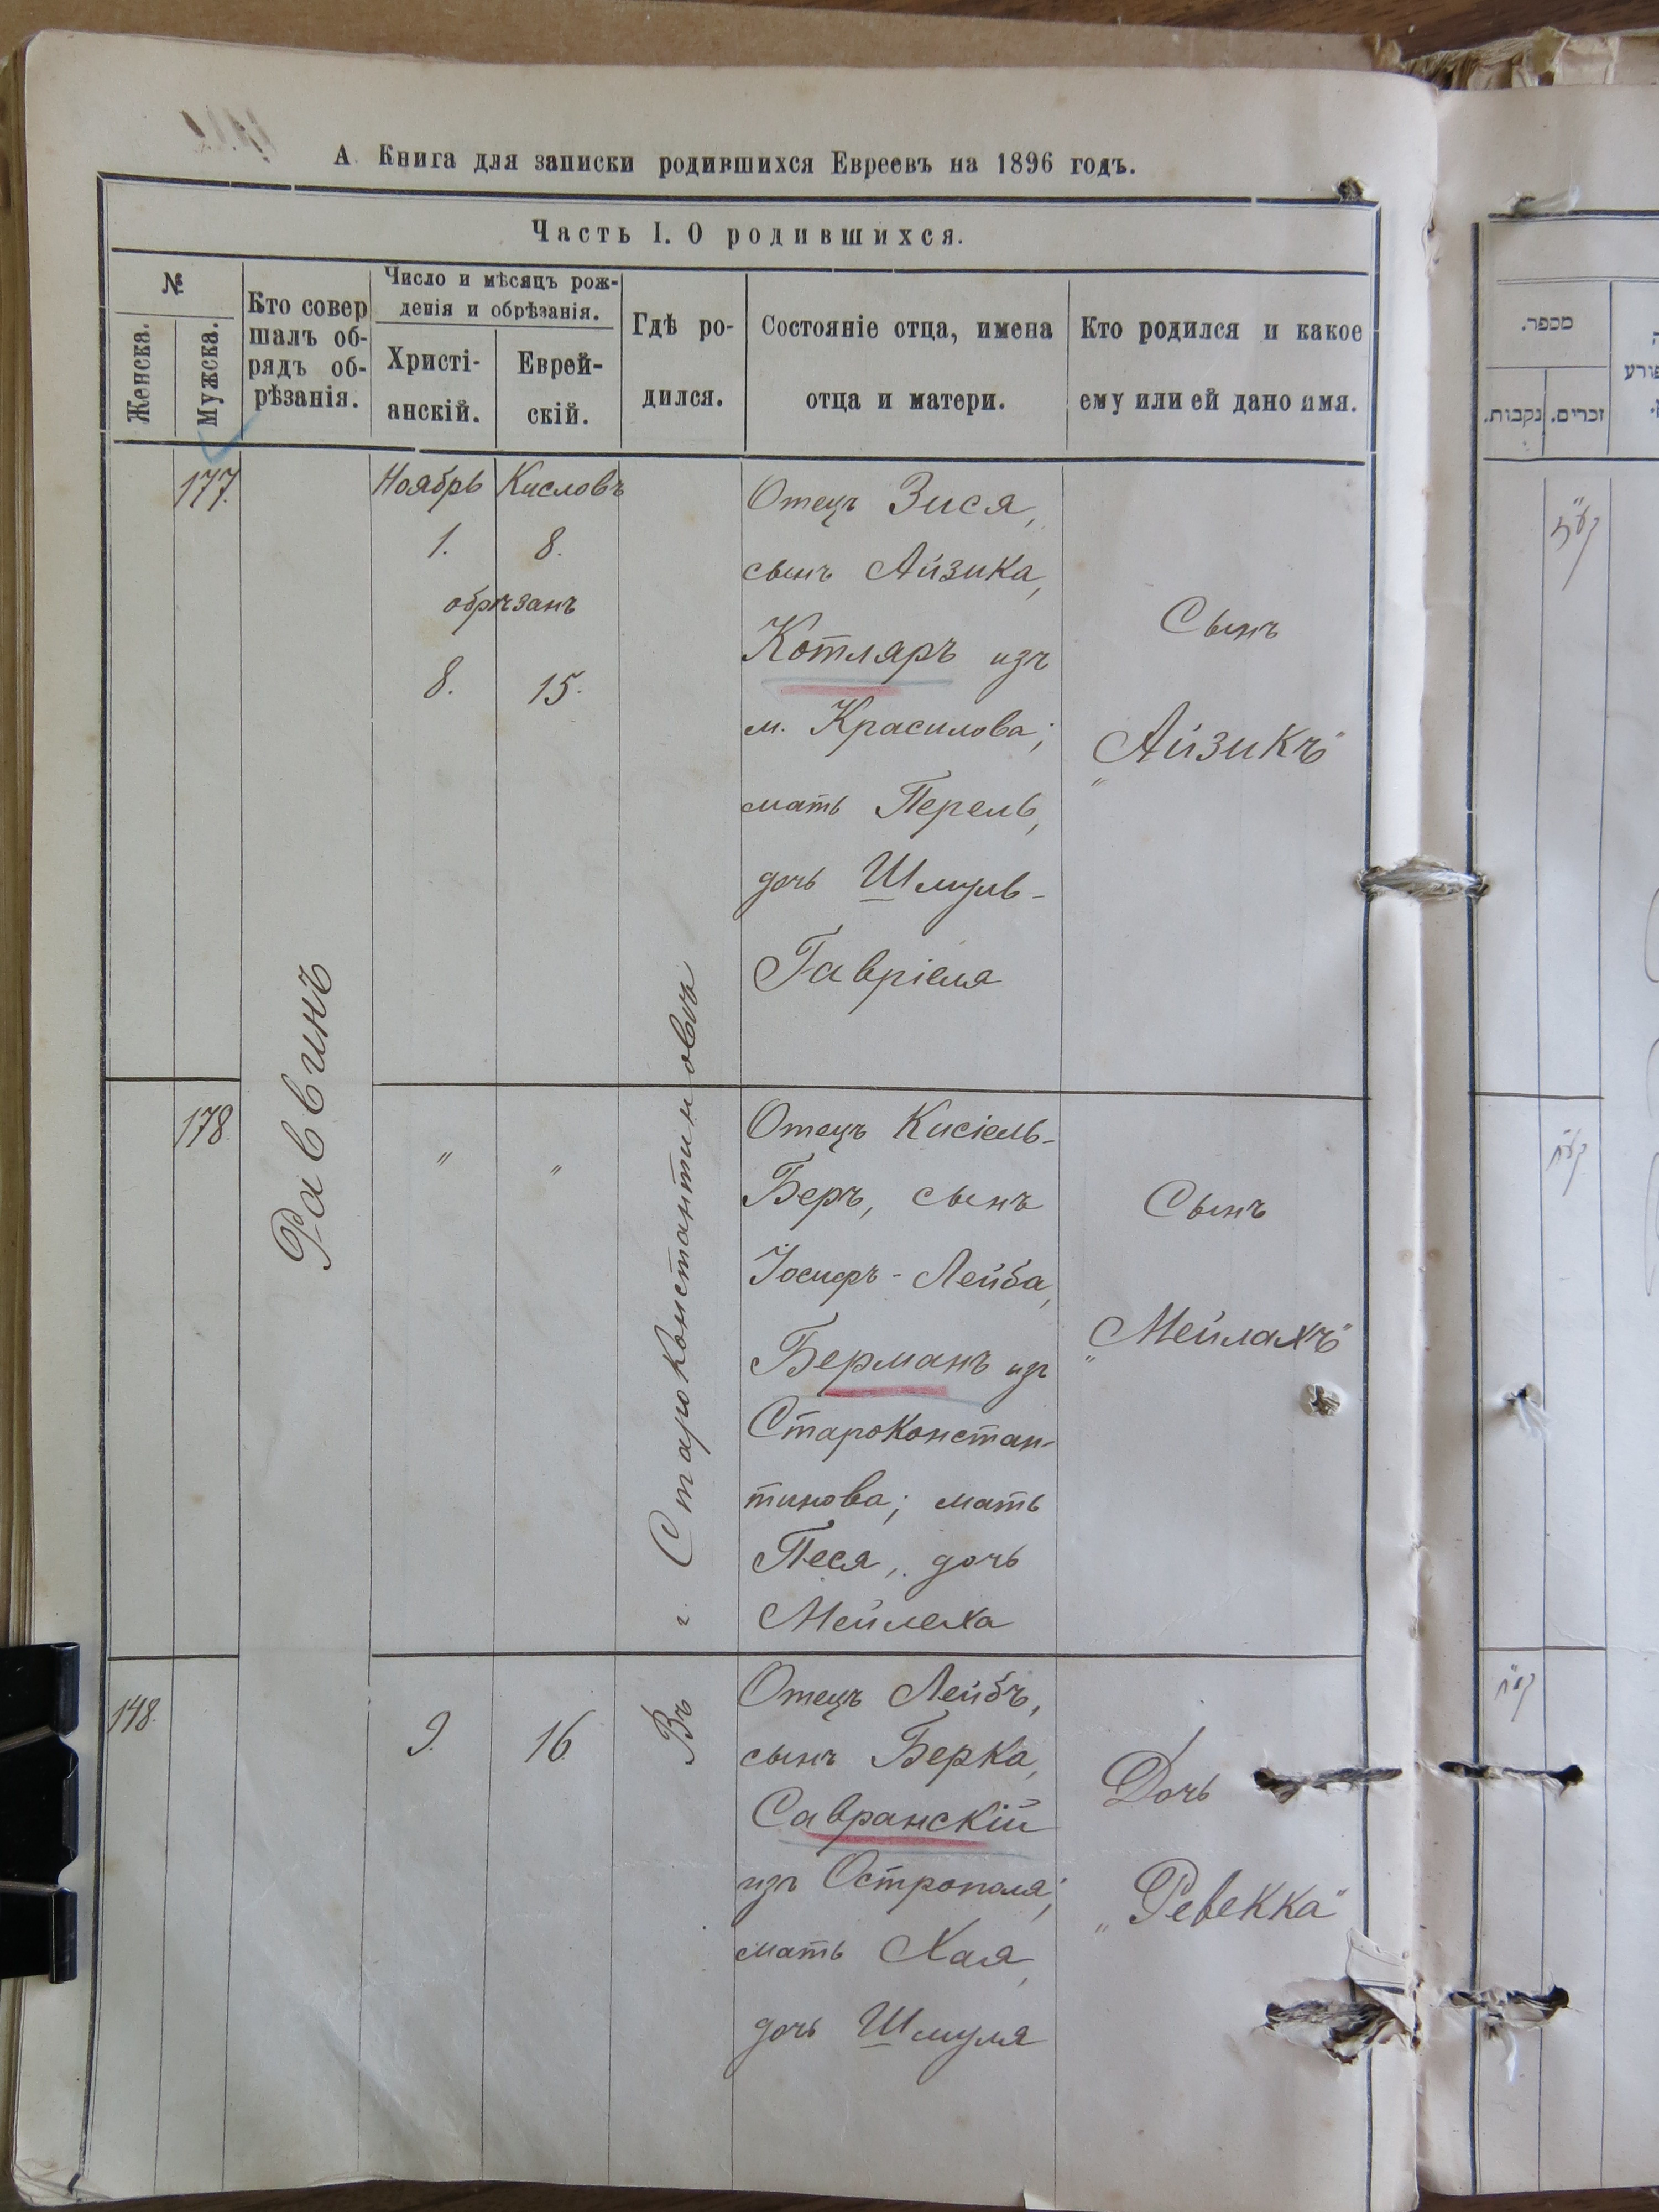 А. Книга для записки родившихся Евреевъ на 1896 годъ.
Часть I. О родившихся.
№
Женска.
Мужска.
Кто совер
шалъ об-
рядъ об-
рѣзанія.
Число и мѣсяцъ рож-
денія и обрѣзанія.
Христі-
анскій.
Еврей-
скій.
Гдѣ ро-
дился.
Состояніе отца, имена
отца и матери.
Кто родился и какое
ему или ей дано имя.
177.
Раввинъ
Ноябрь
Кисловъ
1.
8.
обрѣзанъ
8.
15.
Въ г. Староконстантиновѣ
Отецъ Зися,
сынъ Айзика,
Котляръ изъ
м. Красилова;
мать Перель,
дочь Шмуль-
Гавріеля
Сынъ
„Айзикъ"
178.
"
"
Отецъ Кисіель-
Беръ, сынъ
Іосифъ-Лейба,
Берманъ изъ
Староконстан-
тинова; мать
Песя, дочь
Мейлеха
Сынъ
„Мейлахъ"
148.
9.
16.
Отецъ Лейбъ,
сынъ Берка,
Савранскій
изъ Острополя;
мать Хая,
дочь Шмуля
Дочь
„Ревекка"
מספר.
זכרים.
נקבות.
קע"ח
קמ"ח